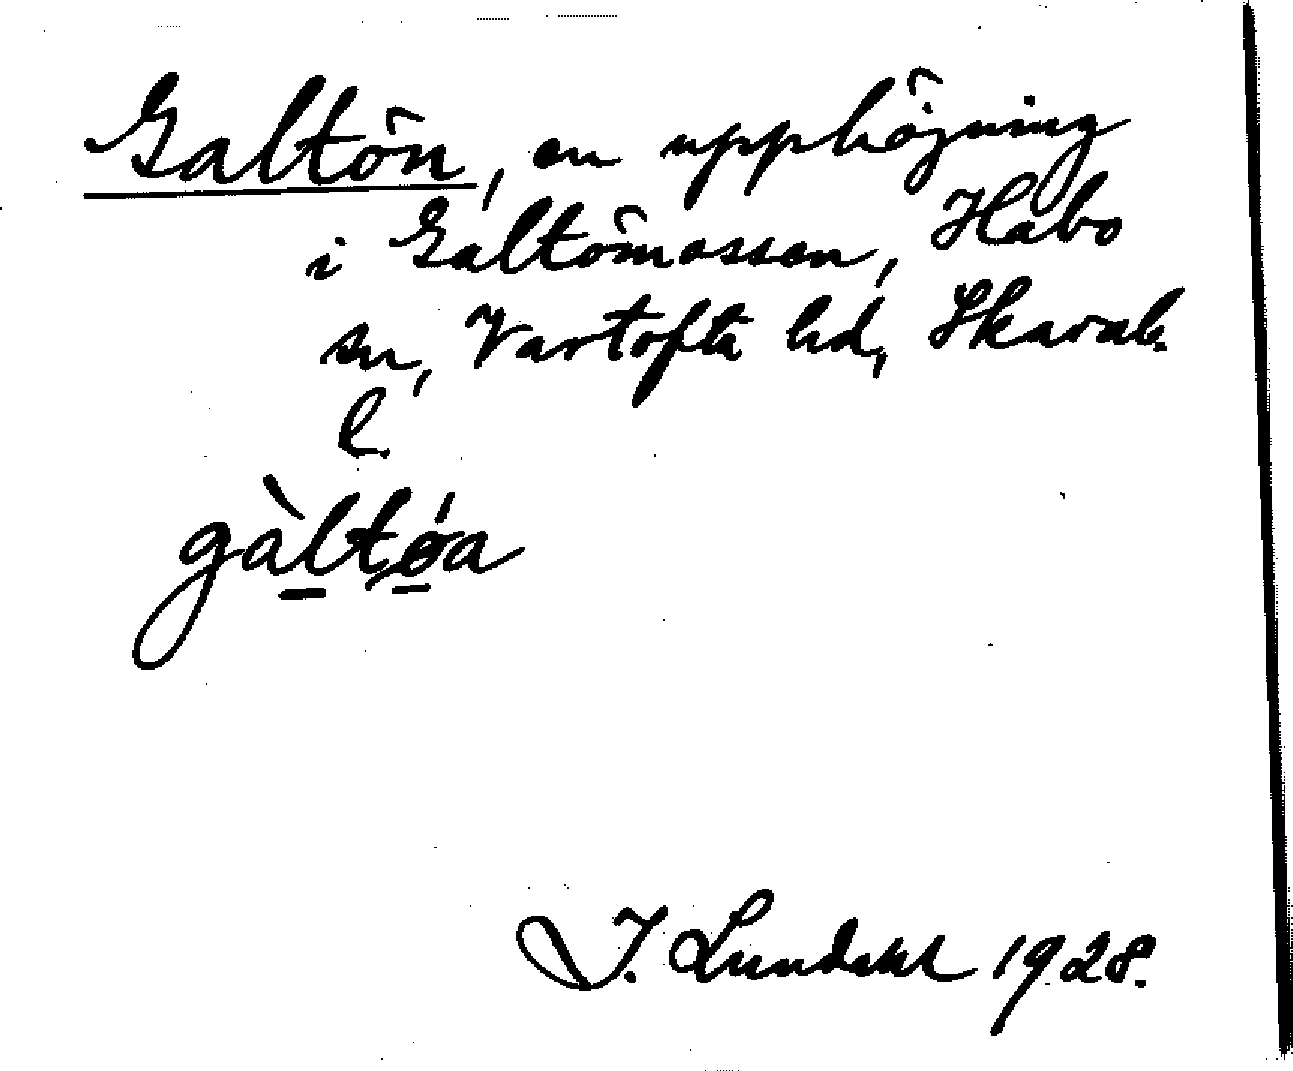 Galtön, en upphöjning
i Galtömossen, Habo
sn, Vartofta hd, Skarab.
l.
gàltǿa
I. Lundahl 1928.